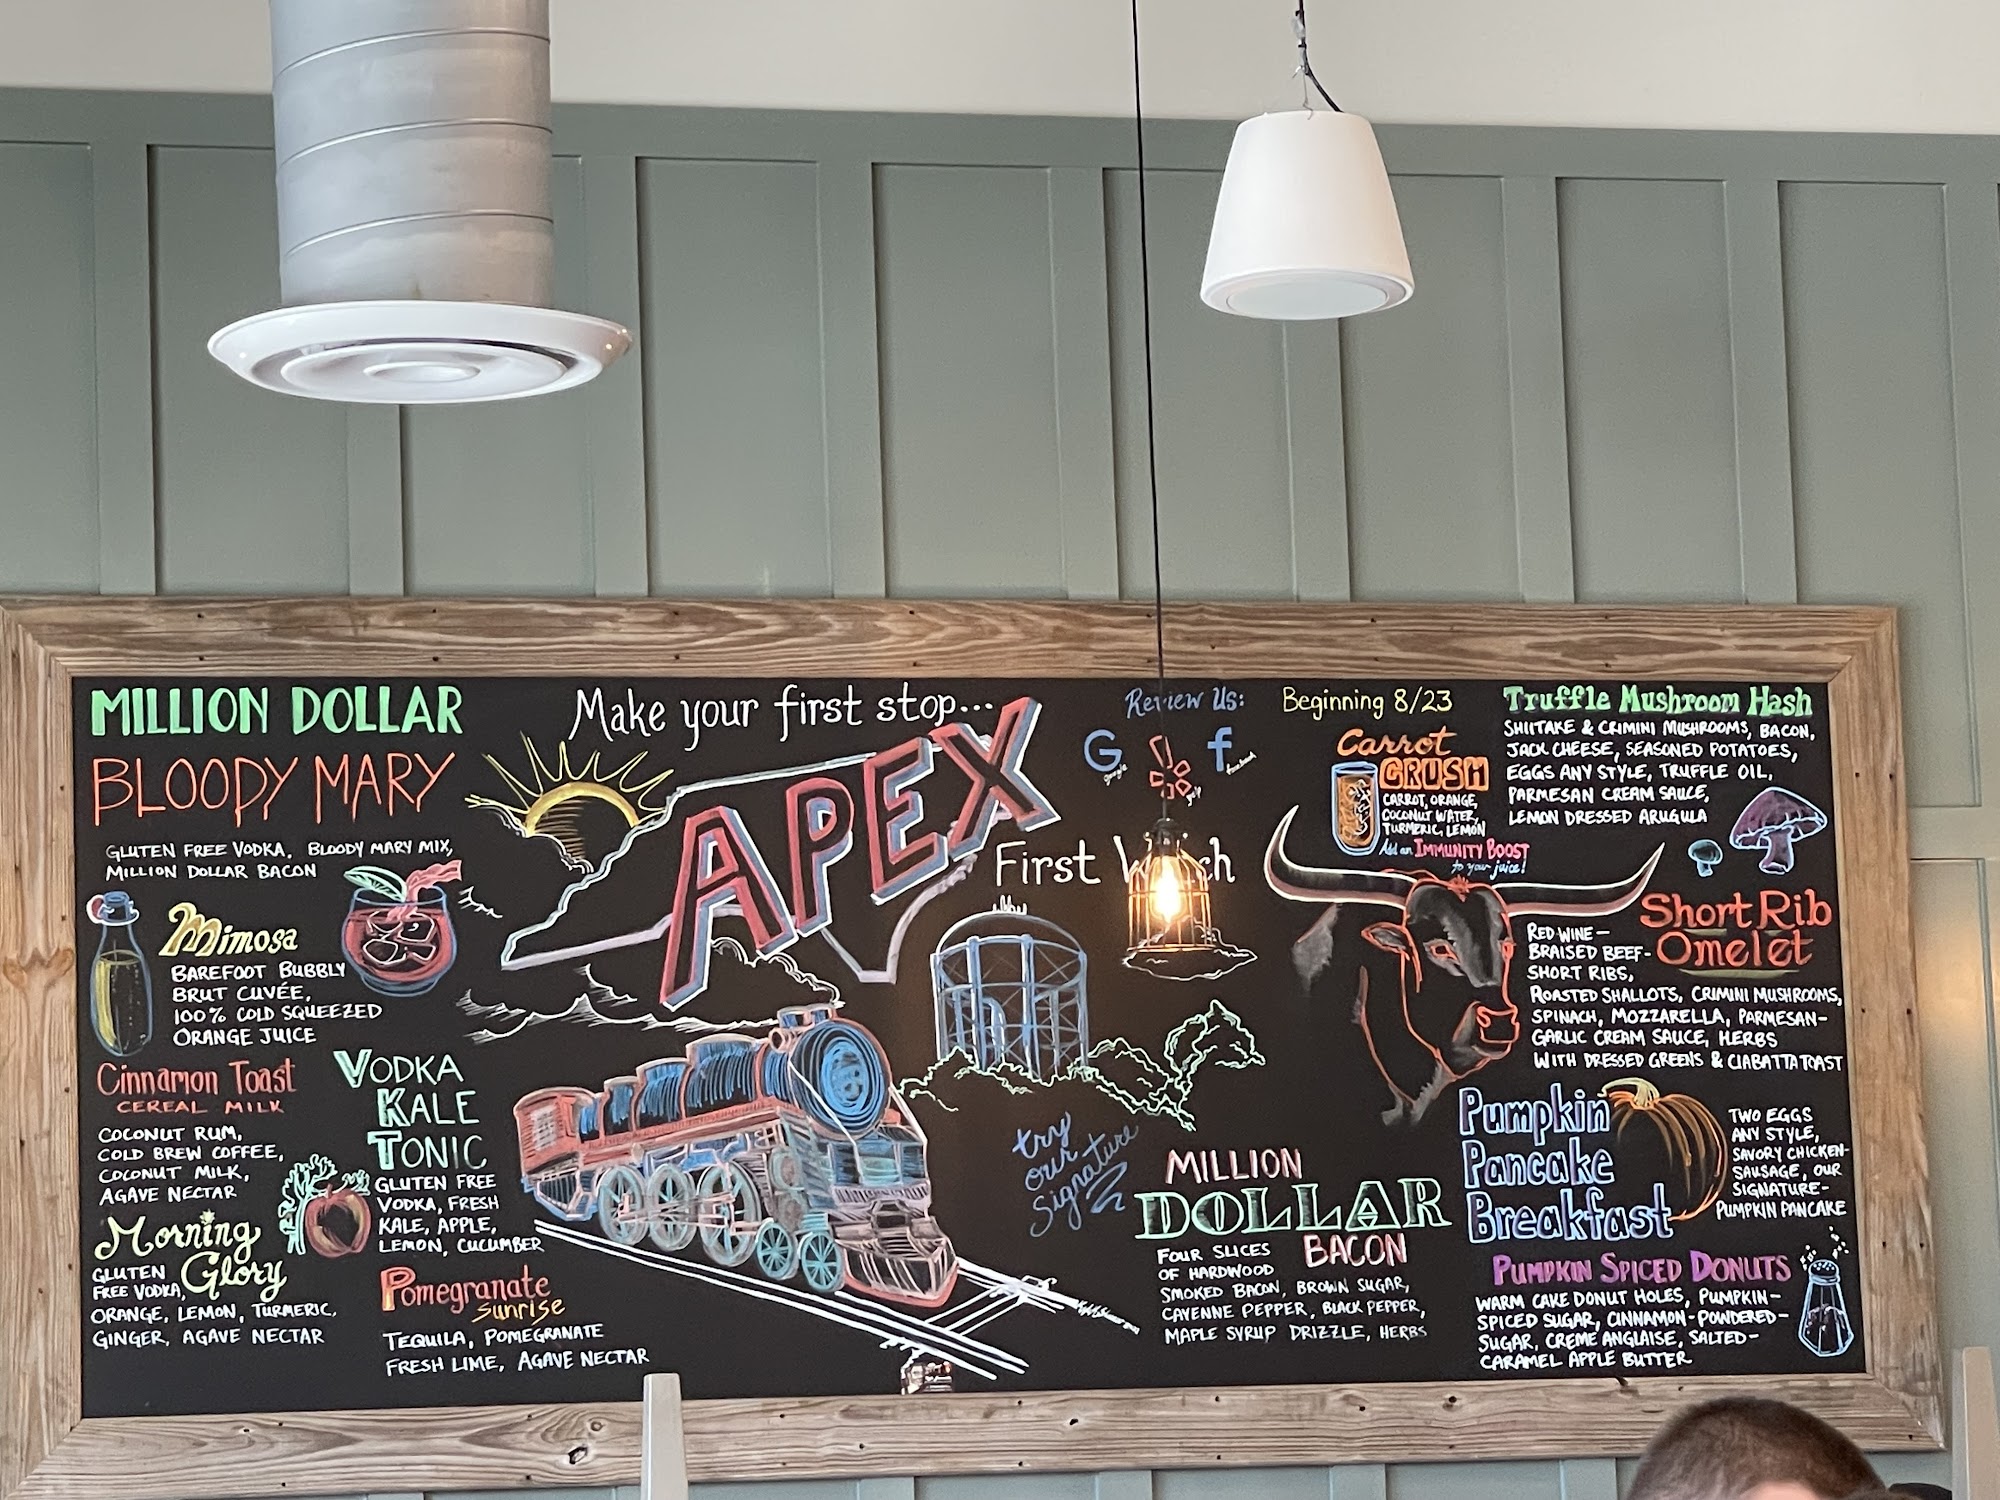 MILLION DOLLAR
BLOODY MARY
GLUTEN FREE VODKA, BLOODY MARY MIX,
MILLION DOLLAR BACON
Mimosa
BAREFOOT BUBBLY
BRUT CUVÉE,
100% COLD SQUEEZED
ORANGE JUICE
Cinnamon Toast
CEREAL MILK
COCONUT RUM,
COLD BREW COFFEE,
COCONUT MILK,
AGAVE NECTAR
Morning
Glory
GLUTEN
FREE VODKA,
ORANGE, LEMON, TURMERIC,
GINGER, AGAVE NECTAR
VODKA
KALE
TONIC
GLUTEN FREE
VODKA, FRESH
KALE, APPLE,
LEMON, CUCUMBER
Pomegranate
Sunrise
TEQUILA, POMEGRANATE
FRESH LIME, AGAVE NECTAR
Make your first stop...
APEX
First
Review Us:
G
google
yelp
f
facebook
try
our
Signature
MILLION
DOLLAR
BACON
FOUR SLICES
OF HARDWOOD
SMOKED BACON, BROWN SUGAR,
CAYENNE PEPPER, BLACK PEPPER,
MAPLE SYRUP DRIZZLE, HERBS
Beginning 8/23
Carrot
CRUSH
CARROT, ORANGE,
COCONUT WATER,
TURMERIC, LEMON
Add an IMMUNITY BOOST
to your juice!
Truffle Mushroom Hash
SHIITAKE & CRIMINI MUSHROOMS, BACON,
JACK CHEESE, SEASONED POTATOES,
EGGS ANY STYLE, TRUFFLE OIL,
PARMESAN CREAM SAUCE,
LEMON DRESSED ARUGULA
Short Rib
Omelet
RED WINE-
BRAISED BEEF-
SHORT RIBS,
ROASTED SHALLOTS, CRIMINI MUSHROOMS,
SPINACH, MOZZARELLA, PARMESAN-
GARLIC CREAM SAUCE, HERBS
WITH DRESSED GREENS & CIABATTA TOAST
Pumpkin
Pancake
Breakfast
TWO EGGS
ANY STYLE,
SAVORY CHICKEN-
SAUSAGE, OUR
SIGNATURE-
PUMPKIN PANCAKE
PUMPKIN SPICED DONUTS
WARM CAKE DONUT HOLES, PUMPKIN-
SPICED SUGAR, CINNAMON-POWDERED-
SUGAR, CREME ANGLAISE, SALTED-
CARAMEL APPLE BUTTER